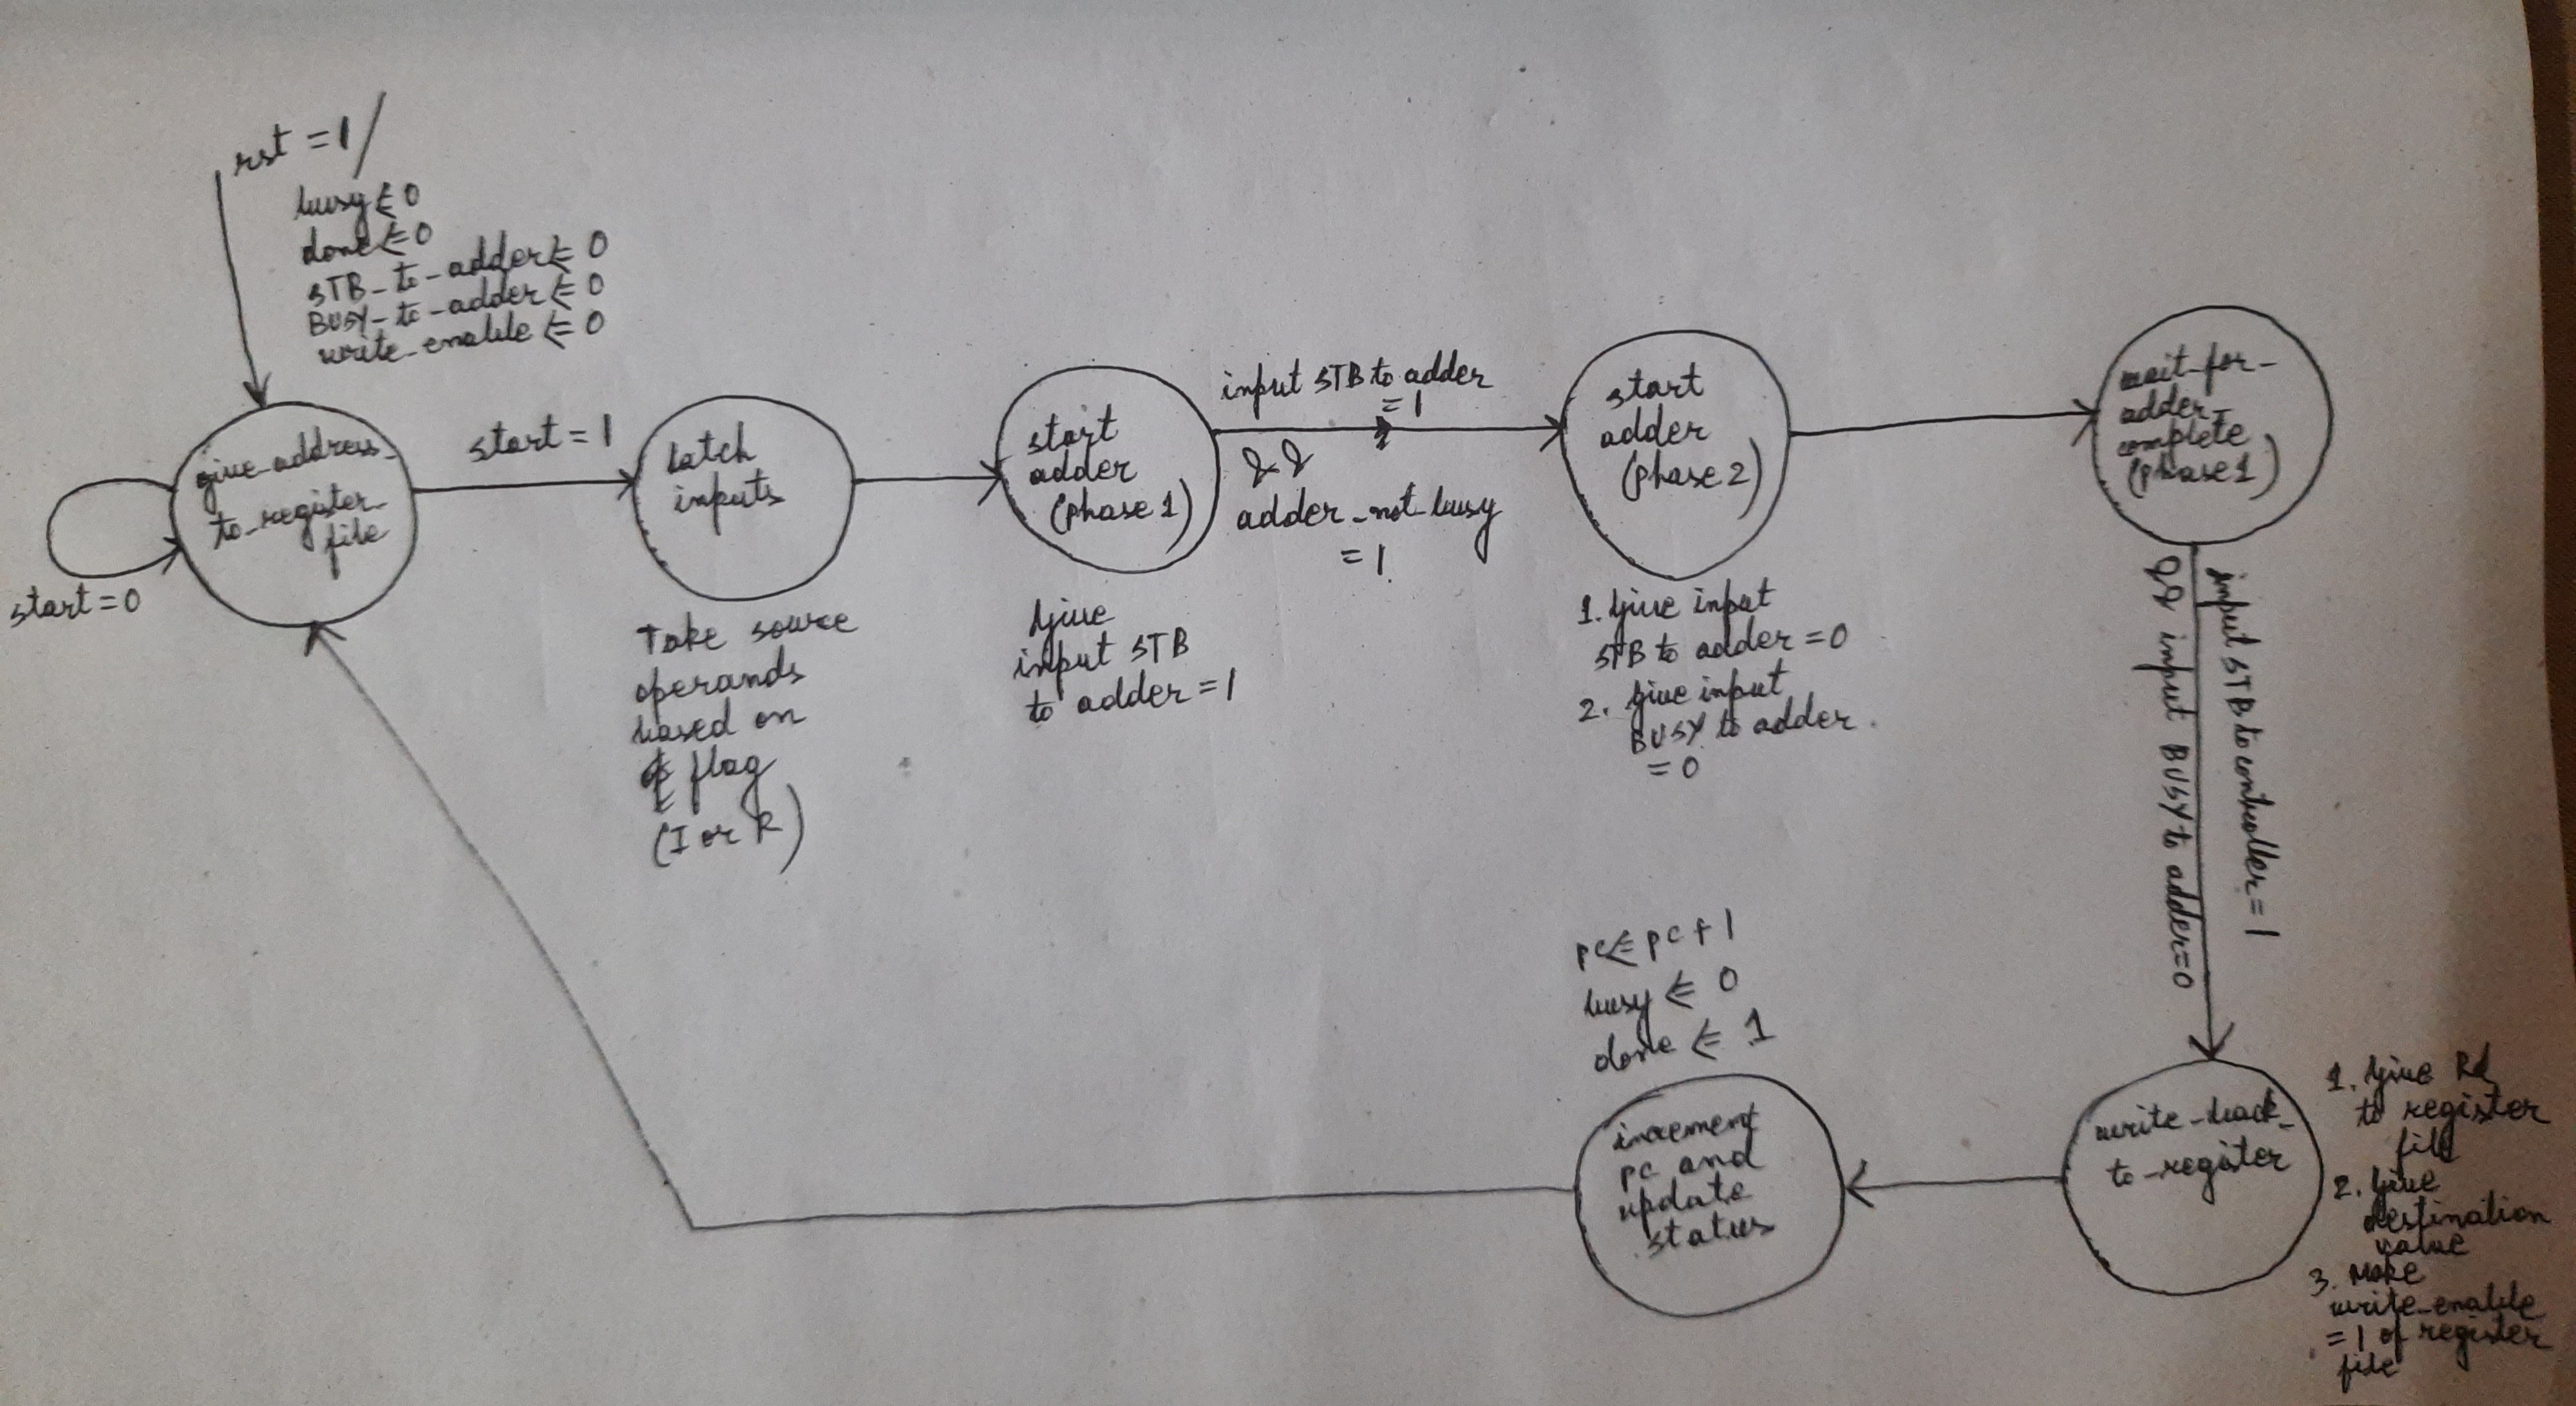 rst = 1 /
busy <= 0
done <= 0
STB_to_adder <= 0
BUSY_to_adder <= 0
write_enable <= 0
give_address_
to_register_
file
start = 0
start = 1
latch
inputs
Take source
operands
based on
flag
(I or R)
start
adder
(phase 1)
Give
input STB
to adder = 1
input STB to adder
= 1
&&
adder_not_busy
= 1
start
adder
(phase 2)
1. Give input
STB to adder = 0
2. Give input
BUSY to adder
= 0
wait_for_
adder_
complete
(phase 1)
input STB to controller = 1
&& input BUSY to adder = 0
write_back_
to_register
1. Give Rd
to register
file
2. Give
destination
value
3. Make
write_enable
= 1 of register
file
pc <= pc + 1
busy <= 0
done <= 1
increment
pc and
update
status